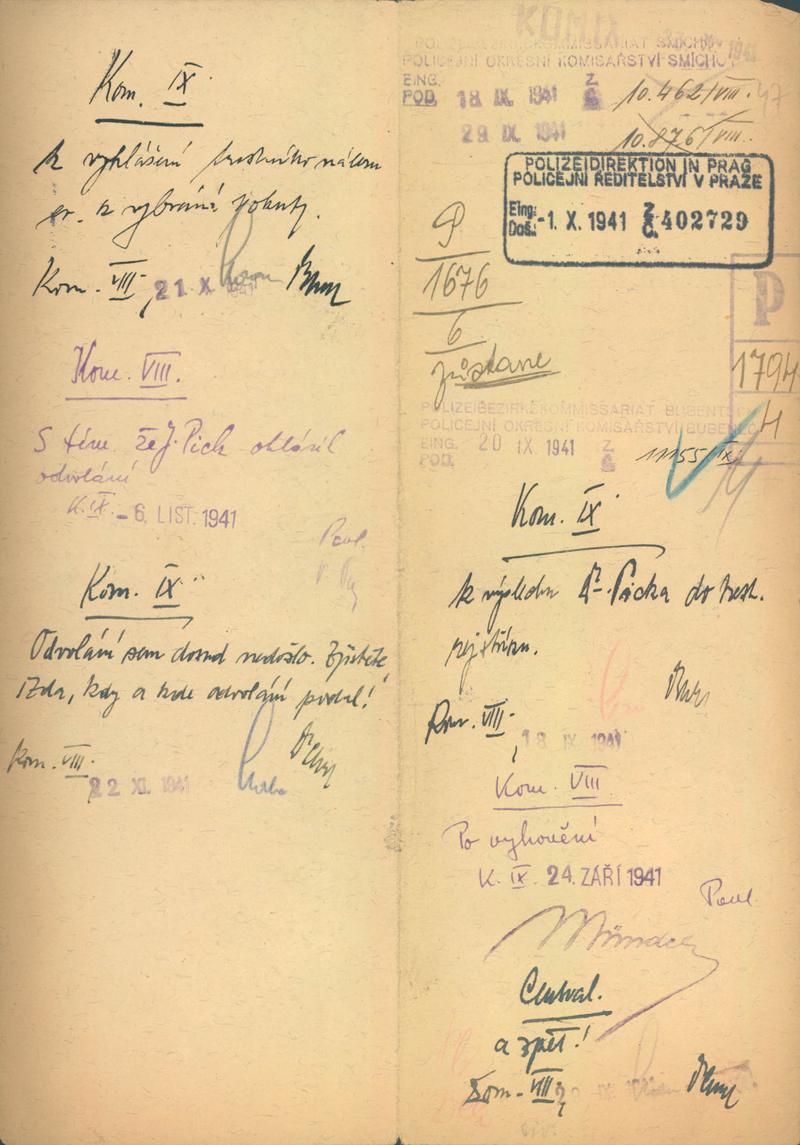 Kom. IX
k vyhlášení trestního nálezu
ev. k vybrání pokuty.
Kom. VIII.
21 X 1941
Kom. VIII.
S tím že J. Pick ohlásil
odvolání
K. IX - 6. LIST. 1941
Kom. IX
Odvolání sem dosud nedošlo. Zjistěte,
zda, kdy a kde odvolání podal!
Kom. VIII.
22 XI. 1941
KOM.IX
POLIZEIBEZIRKSKOMMISSARIAT SMICHOW
POLICEJNÍ OKRESNÍ KOMISAŘSTVÍ SMÍCHOV
EING.
POD. 18 IX. 1941 Z
Č 10.462/VIII.
29 IX. 1941 10.876/VIII.
POLIZEIDIREKTION IN PRAG
POLICEJNÍ ŘEDITELSTVÍ V PRAZE
Eing.:
Doš.: -1. X. 1941 Z.
Č. 402729
P
1676
6
zůstane
P
1794
4
POLIZEIBEZIRKSKOMMISSARIAT BUBENTSCH
POLICEJNÍ OKRESNÍ KOMISAŘSTVÍ BUBENEČ
EING.
POD. 20 IX 1941 Z
Č 11155/IX
Kom. IX
k výslechu Dr. Picka do trest.
rejstříku.
Kom. VIII.
18 IX 1941
Kom. VIII
Po vyhovění
K. IX. 24. ZÁŘÍ 1941
Central.
a zpět!
Kom. VIII.